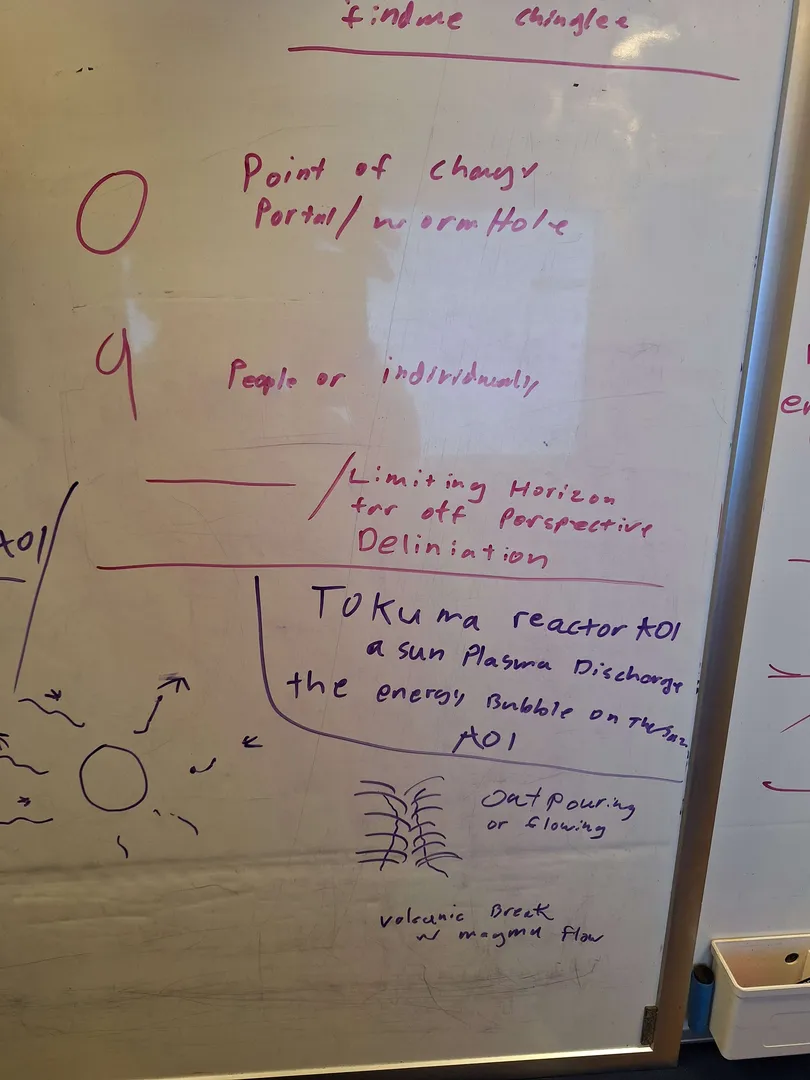 findme chinglee
Point of
Portal/ wormHole
9
People or individually
/Limiting Horizon
far off Perspective
Deliniation
A01
TOKuma reactor A01
a sun Plasma Discharge
the energy Bubble on The
A01
Outpouring
or flowing
volcanic Break
w magma flow